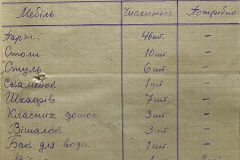 Мебіль Числиться Потрібно
Парт. 46 шт. -
Столи 10 шт. -
Стул 6 шт. -
Скамейок 1 шт. -
Шкафів 7 шт. -
Класних дошок 3 шт. -
Вішалок 3 шт. -
Бак для води 1 шт. -